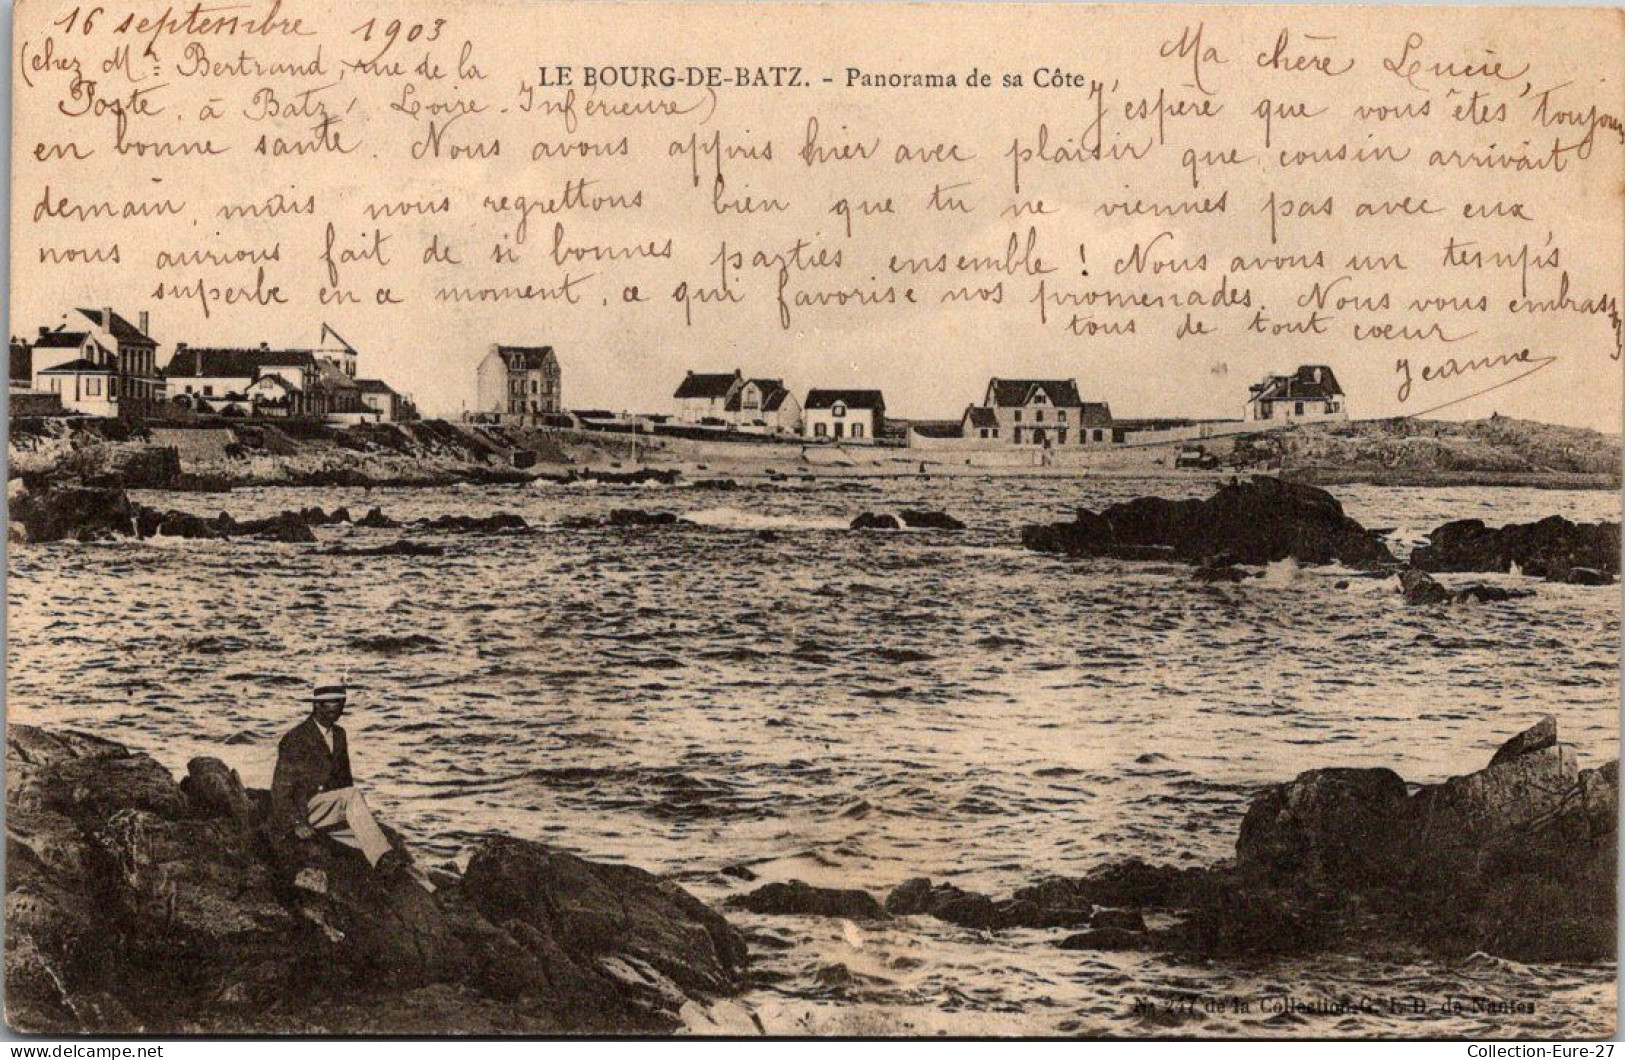 16 septembre 1903
(chez Mr Bertrand, rue de la
Poste, à Batz, Loire-Inférieure)
LE BOURG-DE-BATZ. - Panorama de sa Côte
Ma chère Lucie,
J'espère que vous êtes toujours
en bonne santé. Nous avons appris hier avec plaisir que cousin arrivait
demain, mais nous regrettons bien que tu ne viennes pas avec eux
nous aurions fait de si bonnes parties ensemble ! Nous avons un temps
superbe en ce moment, ce qui favorise nos promenades. Nous vous embrassons
tous de tout coeur
Jeanne
No 217 de la Collection G. I. D. de Nantes
Collection-Eure-27